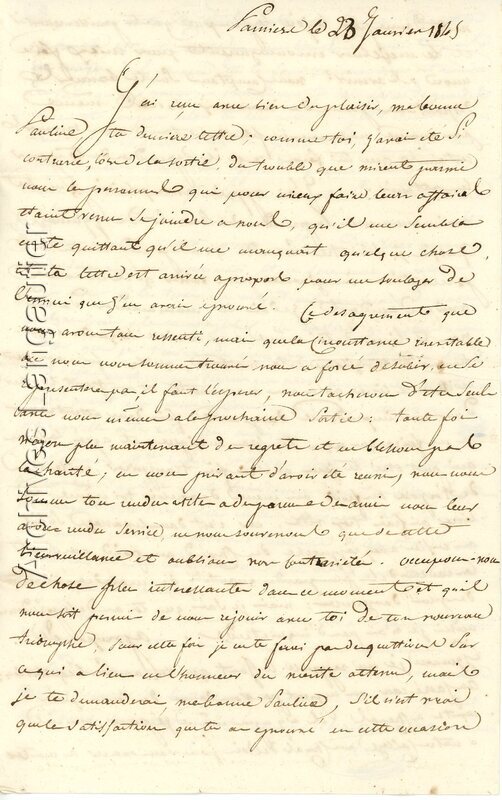 Pamiers le 23 Janvier 1845
J'ai reçu avec bien du plaisir, ma bonne
Pauline ta dernière lettre; comme toi, j'avais été si
contrarié, lors de la sortie, du trouble que mirent parmi
nous les personnes qui pour mieux faire leurs affaires
étaient venu se joindre a nous, qu'il me sembla
en te quittant qu'il me manquait quelque chose,
et ta lettre est arrivée apropos pour me soulager de
l'ennui que j'en avais éprouvé. Ce desagrement que
nous avons tous ressenti, mais que la circonstance inévitable
ou nous nous sommes trouvé nous a forcé de subir, ne se
presentera pas, il faut l'espérer, nous tacherons d'être seuls
entre nous mêmes a la prochaine sortie: toute foi
n'ayons plus maintenant de regrets et ne blessons pas la
charité; en nous privant d'avoir été reuni, nous nous
sommes tou rendu utiles a des personnes de amis nous leurs
avons rendu service, ne nous souvenons que de cette
bienveillance et oublions nos contrariétés. occupons-nous
de chose plus interessante dans ce moment et qu'il
nous soit permi de nous rejouir avec toi de ton nouveau
triomphe, pour cette foi je ne te ferai pas de questions sur
ce qui a lieu en l'honneur du mérite attenu, mais
je te demanderai, ma bonne Pauline, s'il n'est vrai
que la satisfaction que tu as éprouvé en cette occasion
Archives - singaulier